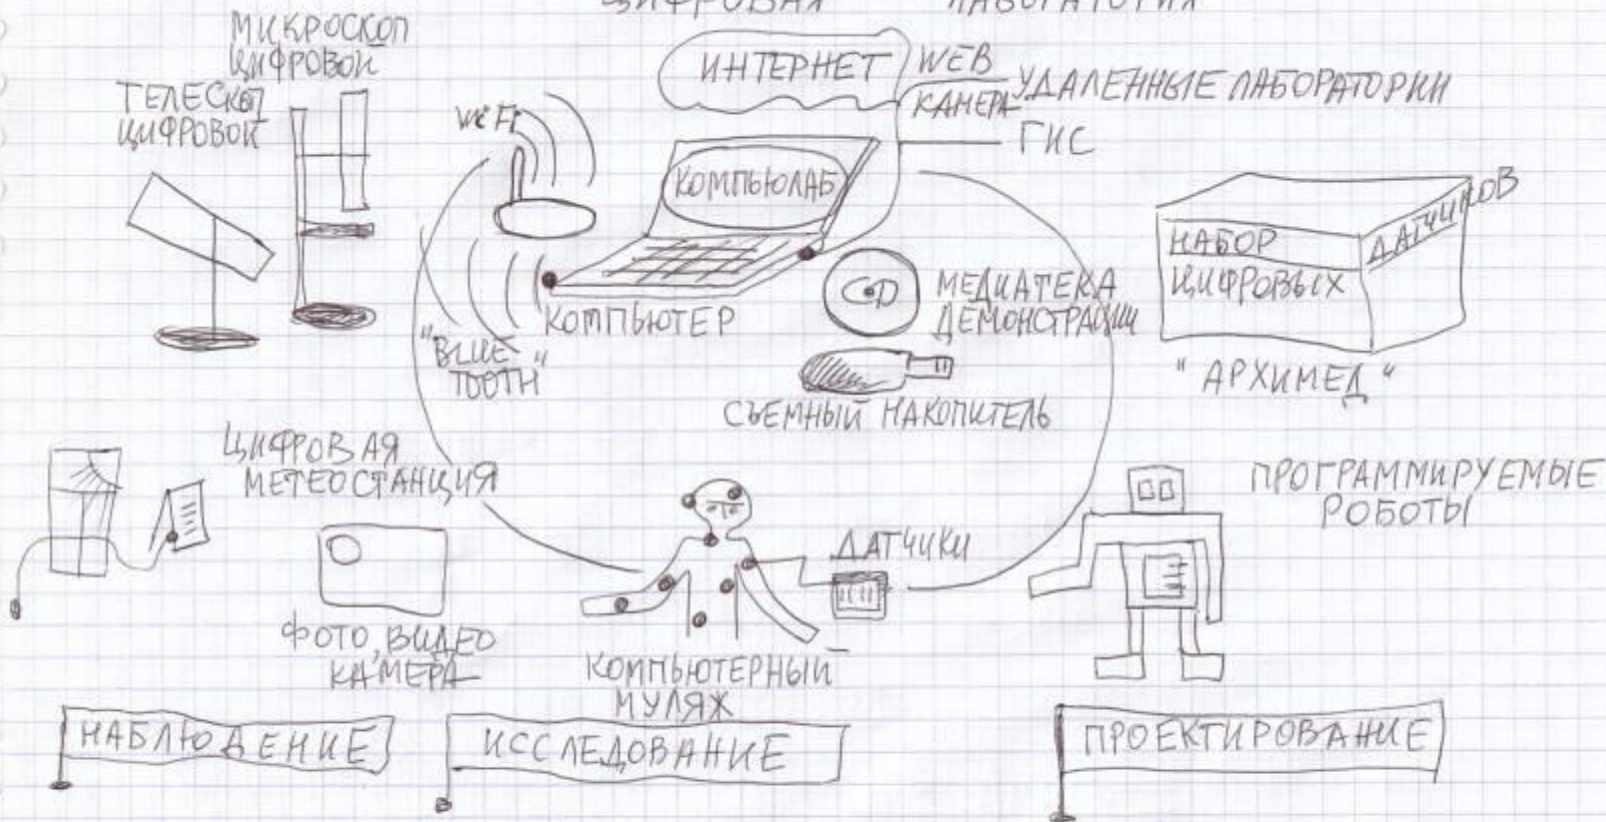 ЦИФРОВАЯ ЛАБОРАТОРИЯ
МИКРОСКОП
ЦИФРОВОЙ
ТЕЛЕСКОП
ЦИФРОВОЙ
WiFi
ИНТЕРНЕТ
WEB
КАМЕРА
УДАЛЕННЫЕ ЛАБОРАТОРИИ
ГИС
КОМПЬЮЛАБ
КОМПЬЮТЕР
"BLUE
TOOTH"
CD
МЕДИАТЕКА
ДЕМОНСТРАЦИИ
СЪЕМНЫЙ НАКОПИТЕЛЬ
НАБОР
ЦИФРОВЫХ
ДАТЧИКОВ
"АРХИМЕД"
ЦИФРОВАЯ
МЕТЕОСТАНЦИЯ
ФОТО, ВИДЕО
КАМЕРА
ДАТЧИКИ
КОМПЬЮТЕРНЫЙ
МУЛЯЖ
ПРОГРАММИРУЕМЫЕ
РОБОТЫ
НАБЛЮДЕНИЕ
ИССЛЕДОВАНИЕ
ПРОЕКТИРОВАНИЕ